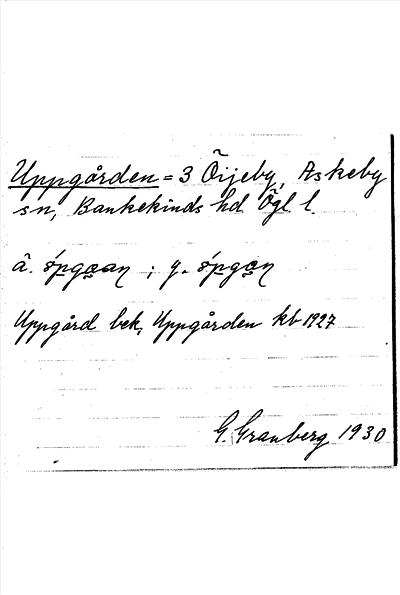 Uppgården = 3 Öijeby, Askeby
sn, Bankekinds hd Ögl l.
ä. ; y.
Uppgård bek, Uppgården kb 1927
G. Granberg 1930